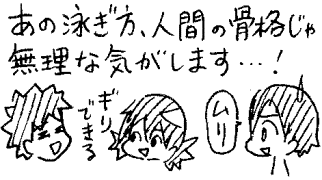 あの泳ぎ方、人間の骨格じゃ
無理な気がします…!
ギリ
できる
ムリ